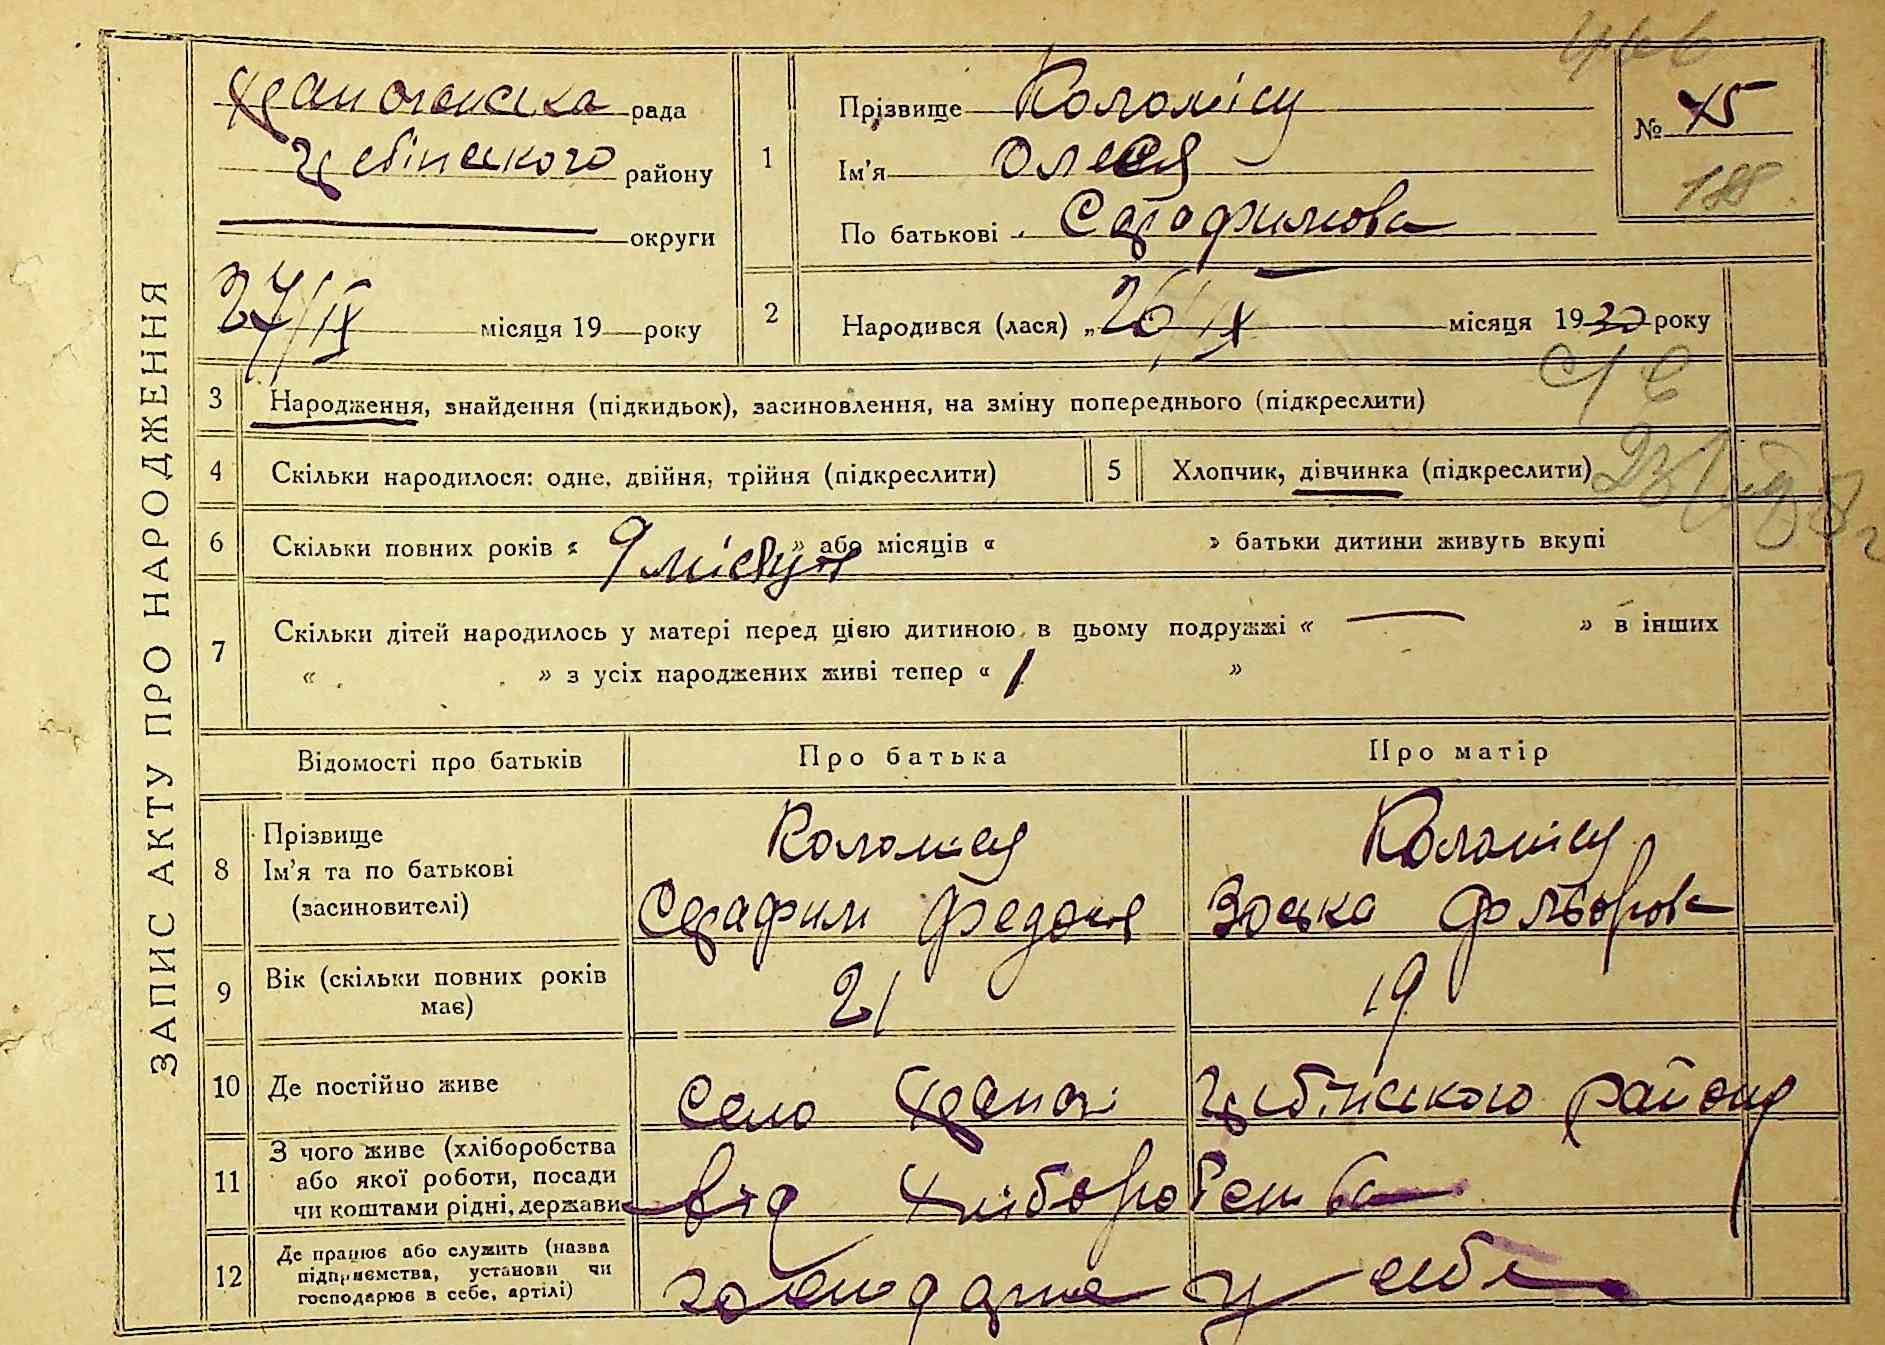 ЗАПИС АКТУ ПРО НАРОДЖЕННЯ
рада
району
округи
27/IX місяця 19 року
1
Прізвище Коломієц
Ім'я Олеся
По батькові
№ 15
2
Народився (лася) „26/IX місяця 1930 року
3 Народження, знайдення (підкидьок), засиновлення, на зміну попереднього (підкреслити)
4 Скільки народилося: одне, двійня, трійня (підкреслити)
5 Хлопчик, дівчинка (підкреслити)
6 Скільки повних років « 9 місяців » або місяців « » батьки дитини живуть вкупі
7 Скільки дітей народилось у матері перед цією дитиною, в цьому подружжі « — » в інших
« » з усіх народжених живі тепер « 1 »
Відомості про батьків Про батька Про матір
8 Прізвище
Ім'я та по батькові
(засиновителі)
Коломієц
Серафим
Коломієц
Зоська
9 Вік (скільки повних років має) 21 19
10 Де постійно живе село району
11 З чого живе (хліборобства
або якої роботи, посади
чи коштами рідні, держави
від хліборобства
12 Де працює або служить (назва
підприємства, установи чи
господарює в себе, артілі)
господарює у себе